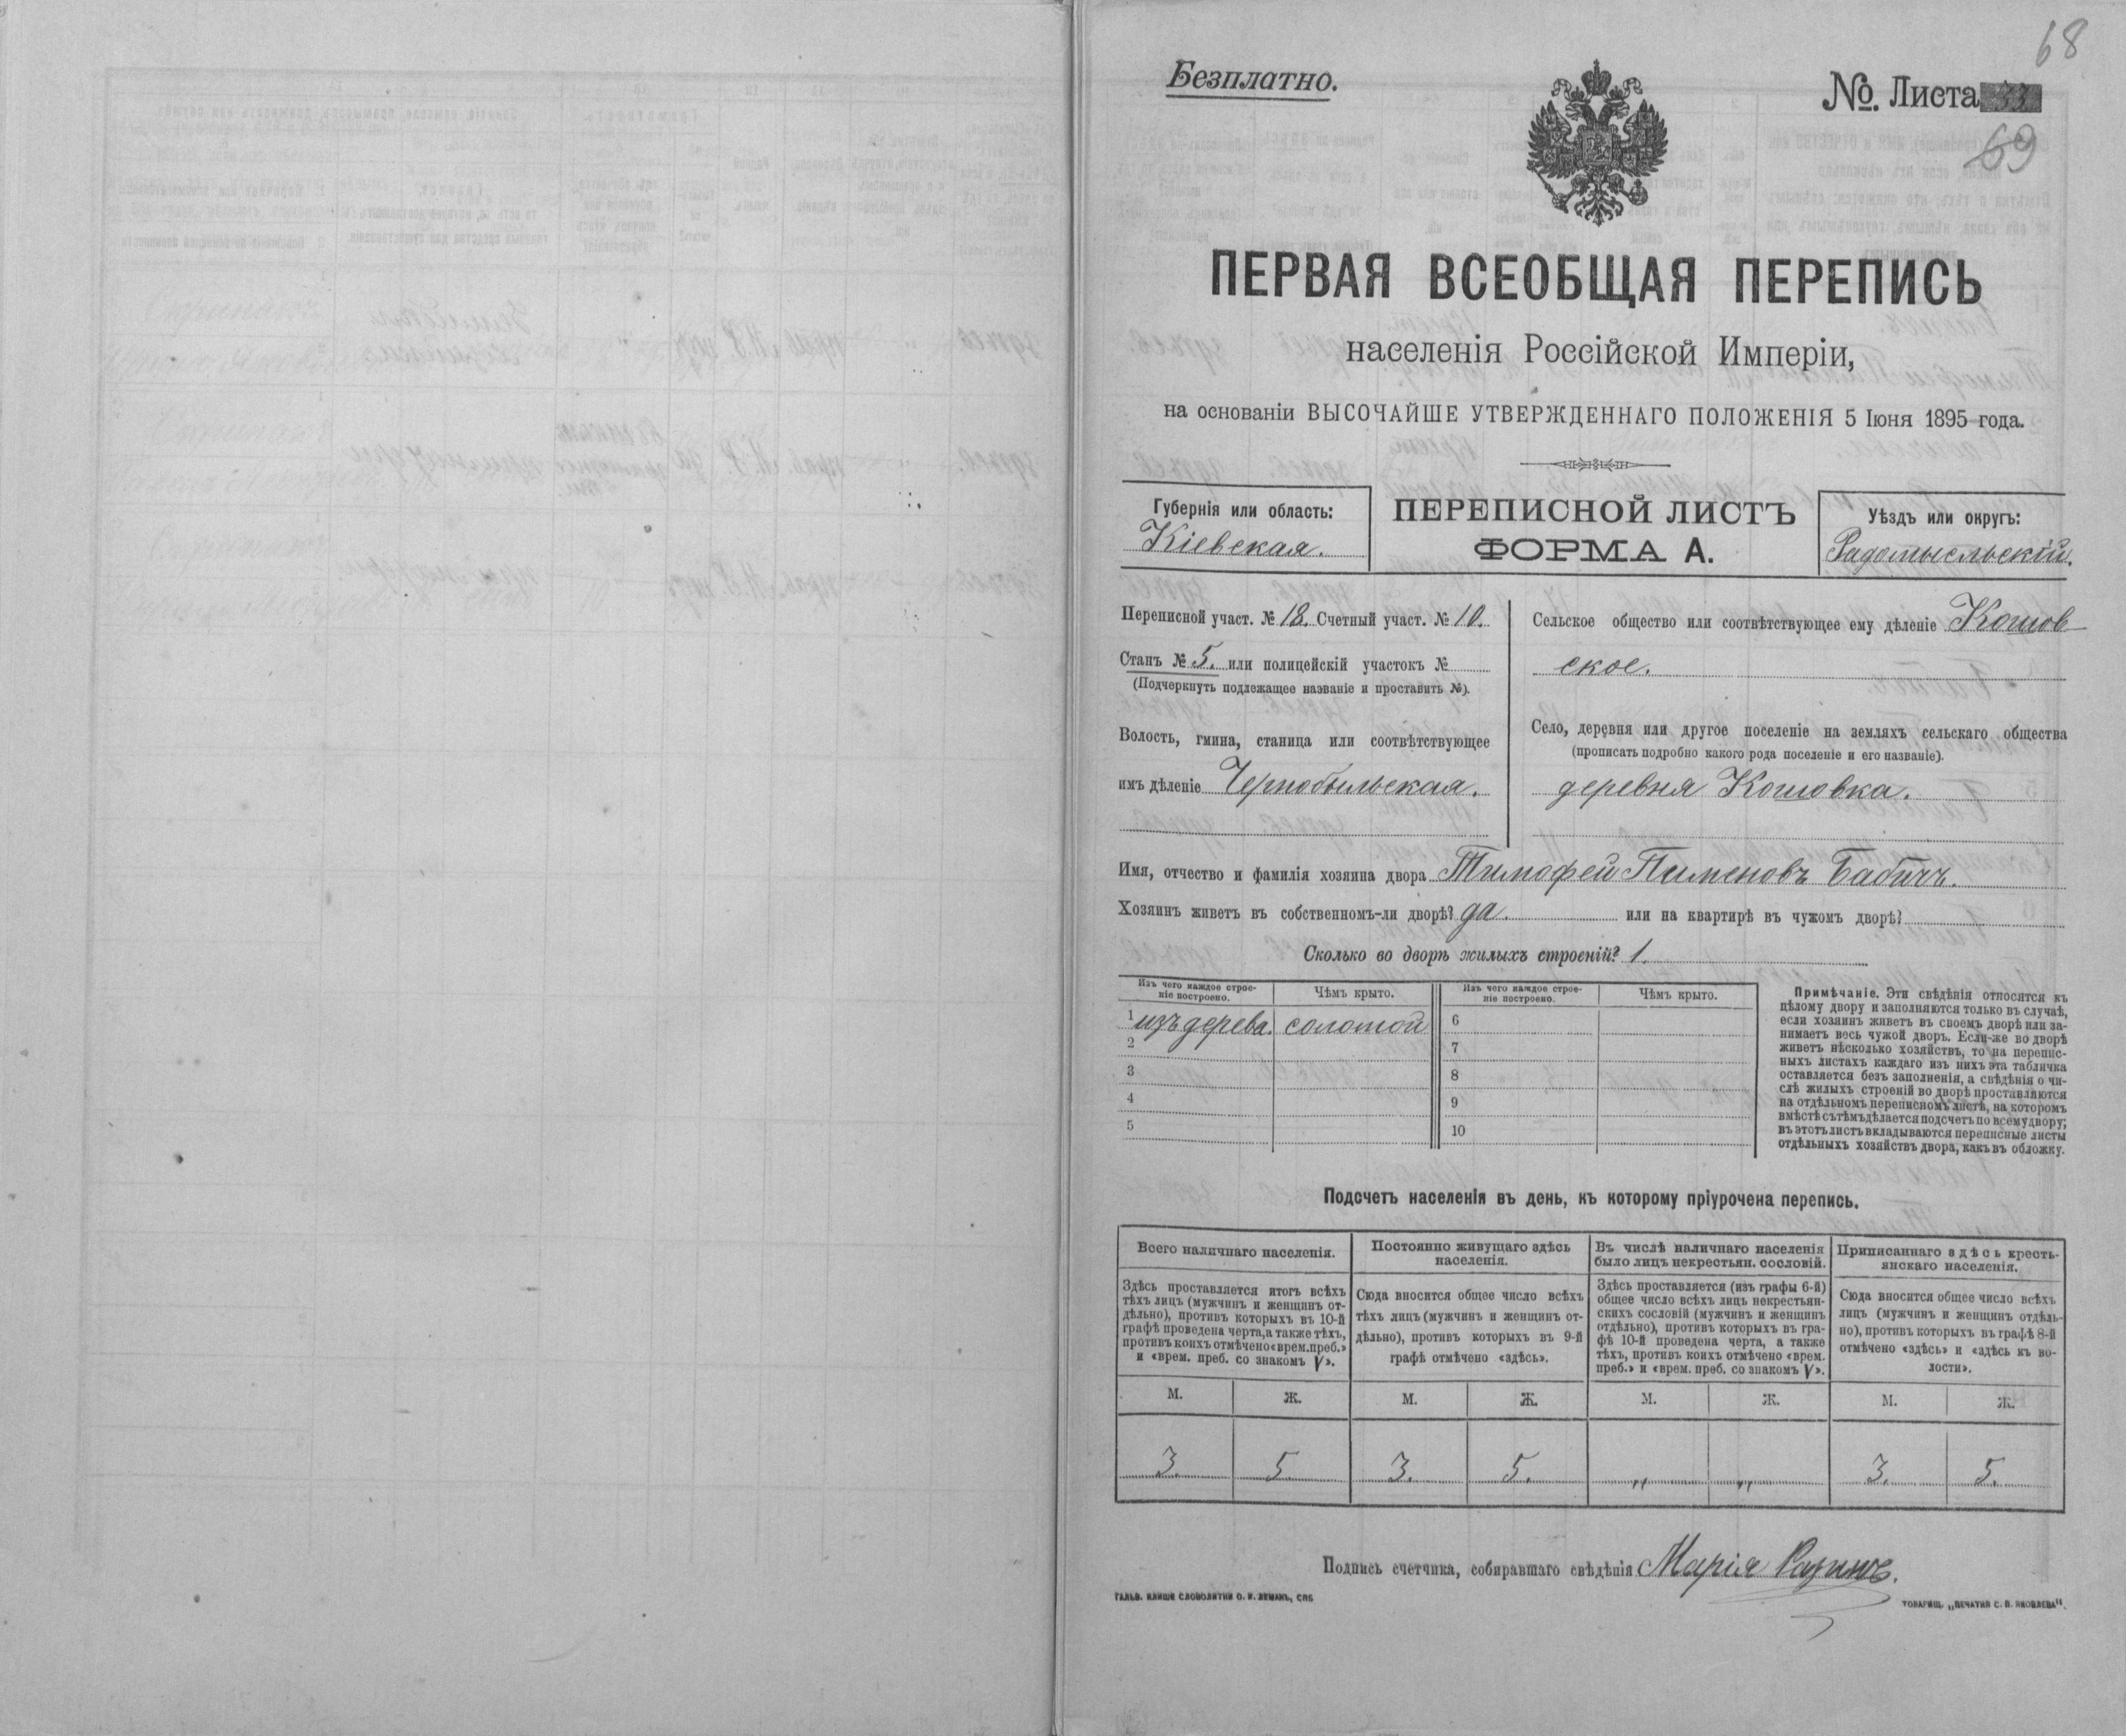 68
Безплатно.
№. Листа 33
69
ПЕРВАЯ ВСЕОБЩАЯ ПЕРЕПИСЬ
населенія Россійской Имперіи,
на основаніи ВЫСОЧАЙШЕ УТВЕРЖДЕННАГО ПОЛОЖЕНІЯ 5 Іюня 1895 года.
Губернія или область:
Кіевская.
ПЕРЕПИСНОЙ ЛИСТЪ
ФОРМА А.
Уѣздъ или округъ:
Радомысльскій.
Переписной участ. № 18. Счетный участ. № 10.
Станъ № 5. или полицейскій участокъ №
(Подчеркнуть подлежащее названіе и проставить №).
Волость, гмина, станица или соотвѣтствующее
имъ дѣленіе Чернобыльская.
Сельское общество или соотвѣтствующее ему дѣленіе Кошов
ское.
Село, деревня или другое поселеніе на земляхъ сельскаго общества
(прописать подробно какого рода поселеніе и его названіе).
деревня Кошовка.
Имя, отчество и фамилія хозяина двора Тимофей Пименовъ Бабичъ.
Хозяинъ живетъ въ собственномъ-ли дворѣ? да. или на квартирѣ въ чужомъ дворѣ?
Сколько во дворѣ жилыхъ строеній? 1.
Изъ чего каждое строе-
ніе построено.
Чѣмъ крыто.
Изъ чего каждое строе-
ніе построено.
Чѣмъ крыто.
1 изъ дерева. соломой 6
2 7
3 8
4 9
5 10
Примѣчаніе. Эти свѣдѣнія относятся къ
цѣлому двору и заполняются только въ случаѣ,
если хозяинъ живетъ въ своемъ дворѣ или за-
нимаетъ весь чужой дворъ. Если-же во дворѣ
живетъ нѣсколько хозяйствъ, то на перепис-
ныхъ листахъ каждаго изъ нихъ эта табличка
оставляется безъ заполненія, а свѣдѣнія о чи-
слѣ жилыхъ строеній во дворѣ проставляются
на отдѣльномъ переписномъ листѣ, на которомъ
вмѣстѣ съ тѣмъ дѣлается подсчетъ по всему двору;
въ этотъ листъ вкладываются переписные листы
отдѣльныхъ хозяйствъ двора, какъ въ обложку.
Подсчетъ населенія въ день, къ которому пріурочена перепись.
Всего наличнаго населенія.
Здѣсь проставляется итогъ всѣхъ
тѣхъ лицъ (мужчинъ и женщинъ от-
дѣльно), противъ которыхъ въ 10-й
графѣ проведена черта, а также тѣхъ,
противъ коихъ отмѣчено «врем. преб.»
и «врем. преб. со знакомъ V».
Постоянно живущаго здѣсь
населенія.
Сюда вносится общее число всѣхъ
тѣхъ лицъ (мужчинъ и женщинъ от-
дѣльно), противъ которыхъ въ 9-й
графѣ отмѣчено «здѣсь».
Въ числѣ наличнаго населенія
было лицъ некрестьян. сословій.
Здѣсь проставляется (изъ графы 6-й)
общее число всѣхъ лицъ некрестьян-
скихъ сословій (мужчинъ и женщинъ
отдѣльно), противъ которыхъ въ гра-
фѣ 10-й проведена черта, а также
тѣхъ, противъ коихъ отмѣчено «врем.
преб.» и «врем. преб. со знакомъ V».
Приписаннаго здѣсь кресть-
янскаго населенія.
Сюда вносится общее число всѣхъ
лицъ (мужчинъ и женщинъ отдѣль-
но), противъ которыхъ въ графѣ 8-й
отмѣчено «здѣсь» и «здѣсь къ во-
лости».
М. Ж. М. Ж. М. Ж. М. Ж.
3. 5 3. 5. „ „ 3. 5.
Подпись счетчика, собиравшаго свѣдѣнія Марія
ГАЛЬВ. КЛИШЕ СЛОВОЛИТНИ О. И. ЛЕМАНЪ, СПБ
ТОВАРИЩ. „ПЕЧАТНЯ С. П. ЯКОВЛЕВА“.